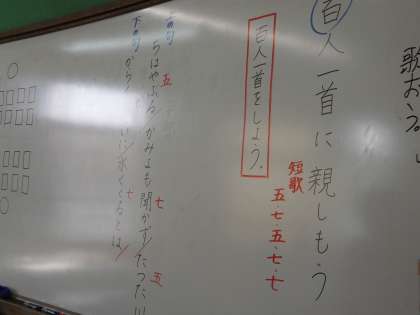 歌おう。
百人一首に親しもう
短歌
五・七・五・七・七
百人一首をしよう。
上の句
ちはやぶる/かみよも聞かず/たつた川
五
七
五
下の句
から いに/水くくるとは/
七